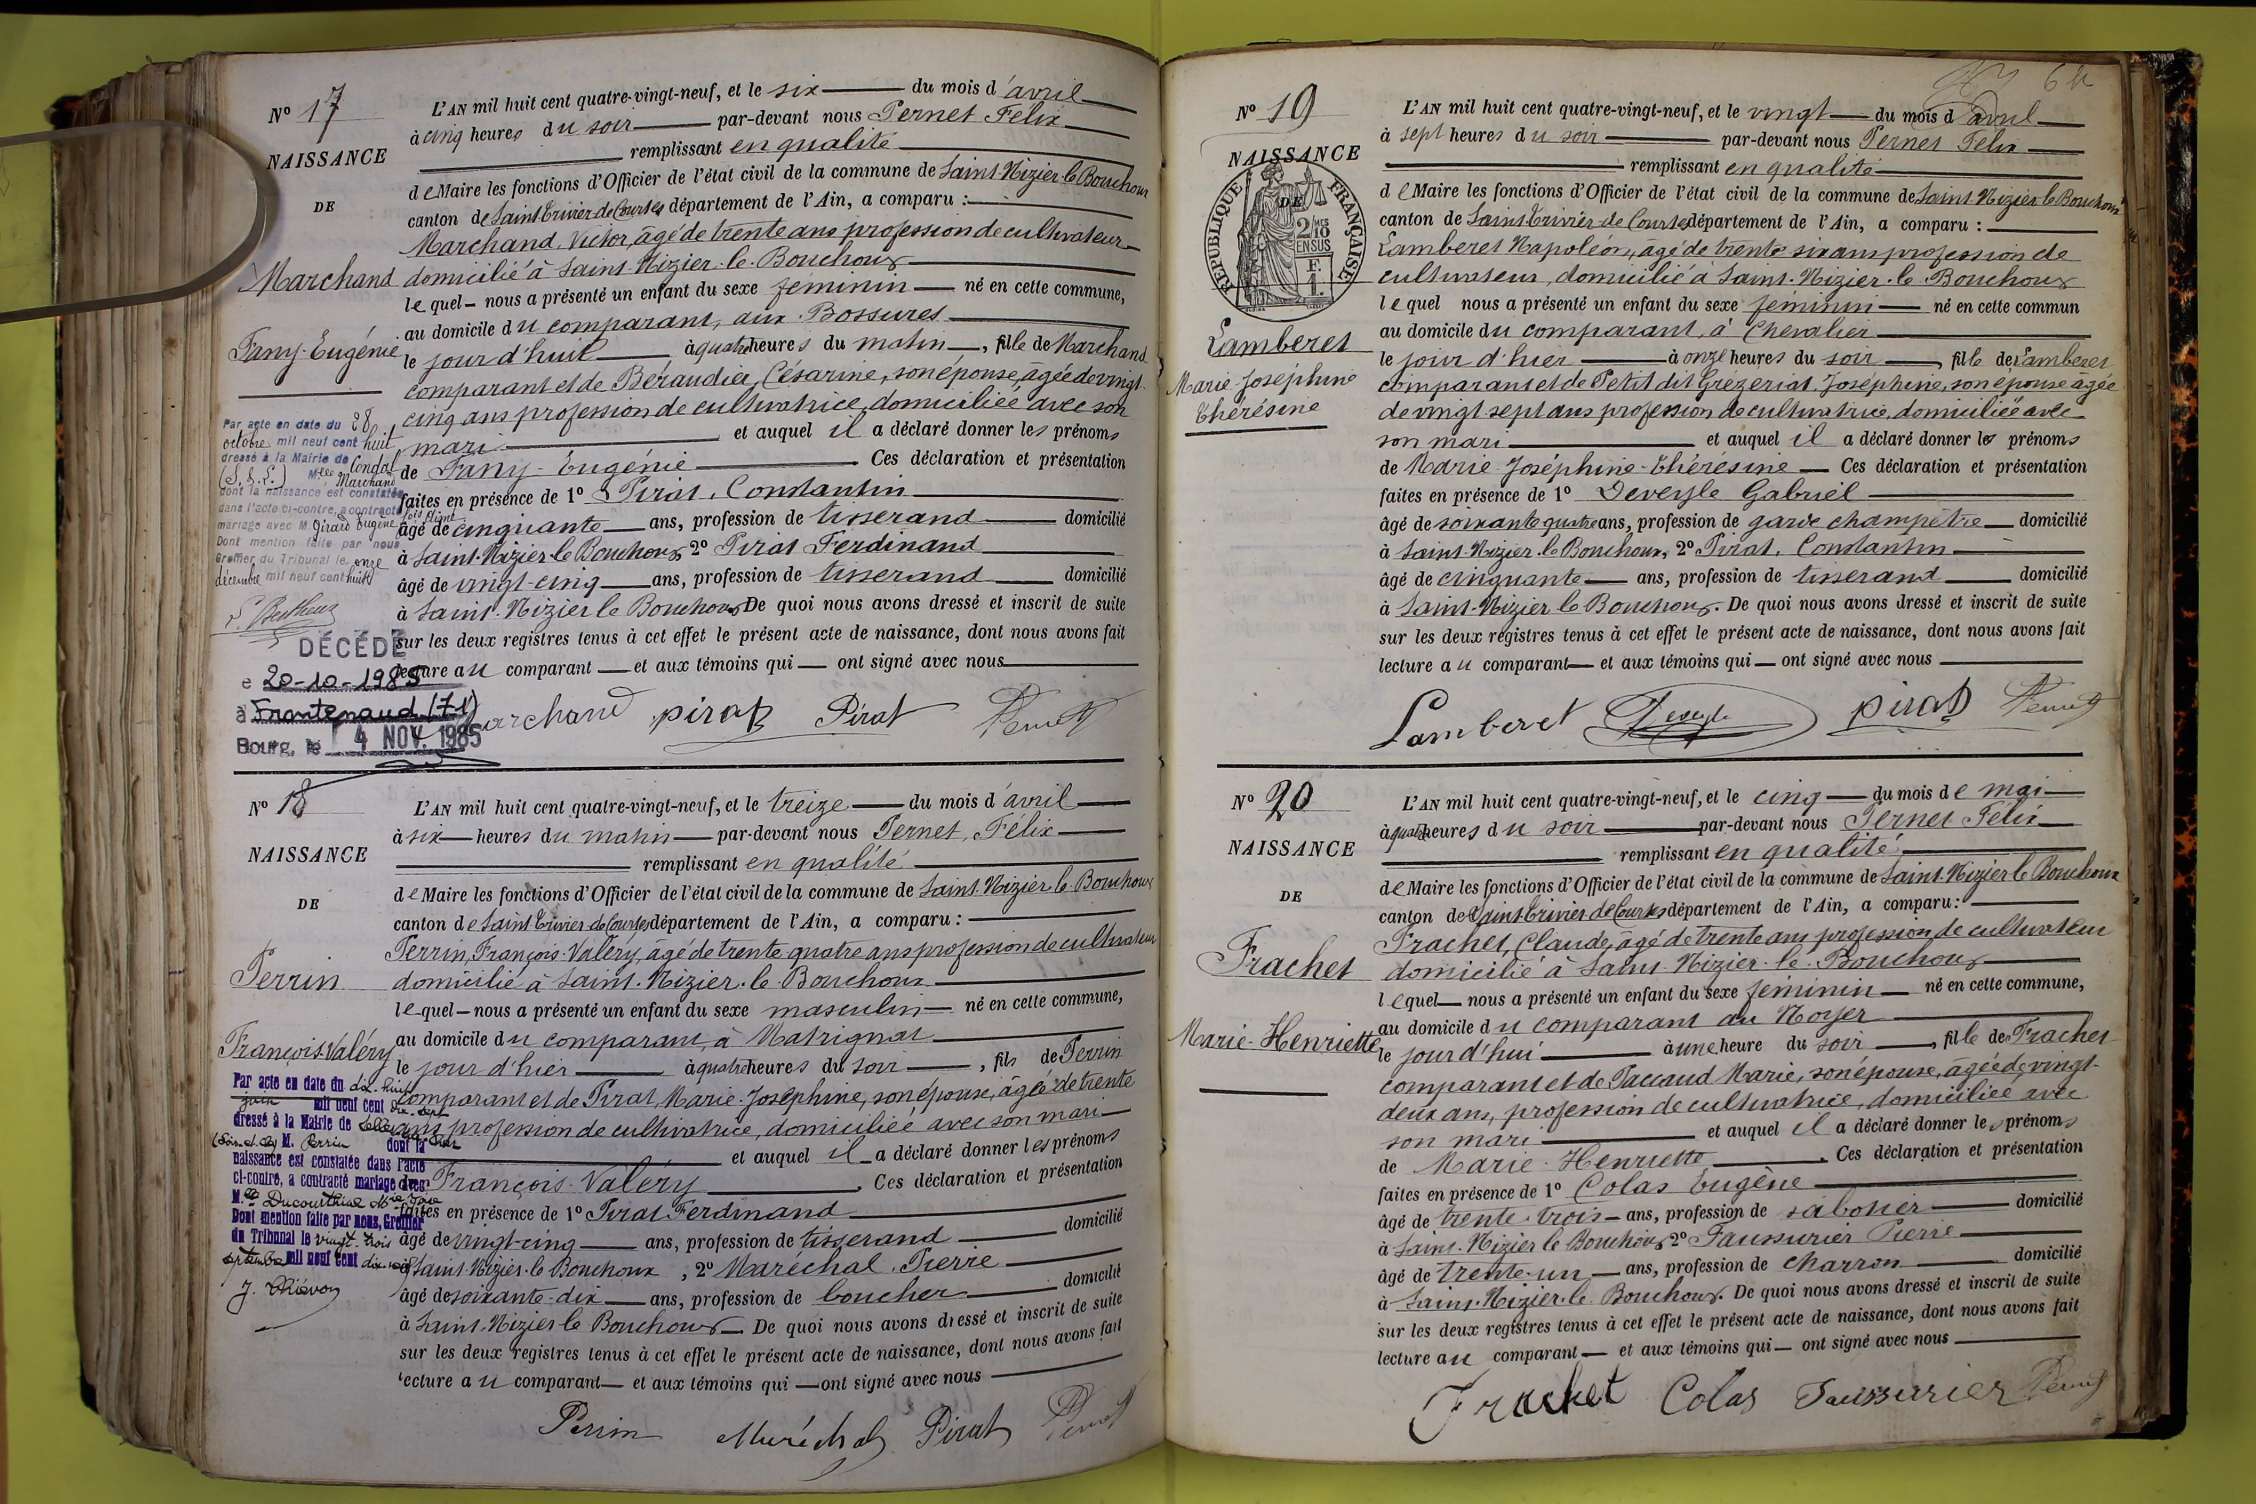 N° 17
NAISSANCE
DE
Marchand
Fany-Eugénie
Par acte en date du 28
octobre mil neuf cent huit
dressé à la Mairie de Condal
(S.&L.) Mlle Marchand
dont la naissance est constatée
dans l'acte ci-contre, a contracté
mariage avec M Girard Eugène
Dont mention faite par nous
Greffier du Tribunal le onze
décembre mil neuf cent huit
DÉCÉDÉ
e 20-10-1985
à Frontenaud (71)
Bourg, le 4 NOV. 1985
L'AN mil huit cent quatre-vingt-neuf, et le six du mois d'avril
à cinq heures du soir par-devant nous Pernet Félix
remplissant en qualité
de Maire les fonctions d'Officier de l'état civil de la commune de Saint-Nizier-le-Bouchoux
canton de Saint-Trivier-de-Courtes département de l'Ain, a comparu :
Marchand, Victor, âgé de trente ans profession de cultivateur
domicilié à Saint-Nizier-le-Bouchoux
lequel nous a présenté un enfant du sexe féminin né en cette commune,
au domicile du comparant, aux Bossures
le jour d'hui à quatre heures du matin, fille de Marchand
comparant et de Béraudier, Césarine, son épouse, âgée de vingt-
cinq ans profession de cultivatrice, domiciliée avec son
mari et auquel il a déclaré donner les prénoms
de Fany-Eugénie Ces déclaration et présentation
faites en présence de 1° Pirat, Constantin
âgé de cinquante ans, profession de tisserand domicilié
à Saint-Nizier-le-Bouchoux, 2° Pirat Ferdinand
âgé de vingt-cinq ans, profession de tisserand domicilié
à Saint-Nizier le Bouchoux De quoi nous avons dressé et inscrit de suite
sur les deux registres tenus à cet effet le présent acte de naissance, dont nous avons fait
lecture au comparant et aux témoins qui ont signé avec nous
Marchand pirat Pirat Pernet
N° 18
NAISSANCE
DE
Perrin
François-Valéry
Par acte en date du dix-huit
juin mil neuf cent dix-sept
dressé à la Mairie de
M. Perrin dont la
naissance est constatée dans l'acte
ci-contre, a contracté mariage avec
M.elle Ducourthial
Dont mention faite par nous, Greffier
du Tribunal le vingt-trois
septembre mil neuf cent
L'AN mil huit cent quatre-vingt-neuf, et le treize du mois d'avril
à six heures du matin par-devant nous Pernet, Félix
remplissant en qualité
de Maire les fonctions d'Officier de l'état civil de la commune de Saint-Nizier le Bouchoux
canton de Saint Trivier de Courtes département de l'Ain, a comparu :
Perrin, François-Valéry, âgé de trente quatre ans profession de cultivateur
domicilié à Saint-Nizier-le-Bouchoux
lequel nous a présenté un enfant du sexe masculin né en cette commune,
au domicile du comparant, à Matrignat
le jour d'hier à quatre heures du soir, fils de Perrin
comparant et de Pirat, Marie-Joséphine, son épouse, âgée de trente
ans profession de cultivatrice, domiciliée avec son mari
et auquel il a déclaré donner les prénoms
de François-Valéry Ces déclaration et présentation
faites en présence de 1° Pirat Ferdinand
âgé de vingt-cinq ans, profession de tisserand domicilié
à Saint-Nizier-le-Bouchoux, 2° Maréchal, Pierre
âgé de soixante-dix ans, profession de boucher domicilié
à Saint-Nizier le Bouchoux De quoi nous avons dressé et inscrit de suite
sur les deux registres tenus à cet effet le présent acte de naissance, dont nous avons fait
lecture au comparant et aux témoins qui ont signé avec nous
Perrin Maréchal Pirat Pernet
N° 19
NAISSANCE
DE
RÉPUBLIQUE FRANÇAISE
2/10 MES
EN SUS
F.
1.
Lamberet
Marie Joséphine
Thérésine
L'AN mil huit cent quatre-vingt-neuf, et le vingt du mois d'avril
à sept heures du soir par-devant nous Pernet Félix
remplissant en qualité
de Maire les fonctions d'Officier de l'état civil de la commune de Saint-Nizier le Bouchoux
canton de Saint Trivier de Courtes département de l'Ain, a comparu :
Lamberet Napoléon, âgé de trente six ans profession de
cultivateur, domicilié à Saint-Nizier-le-Bouchoux
lequel nous a présenté un enfant du sexe féminin né en cette commun
au domicile du comparant, à Chevalier
le jour d'hier à onze heures du soir, fille de Lamberet
comparant et de Petit dit Grézeriat, Joséphine, son épouse âgée
de vingt-sept ans profession de cultivatrice, domiciliée avec
son mari et auquel il a déclaré donner les prénoms
de Marie-Joséphine-Thérésine Ces déclaration et présentation
faites en présence de 1° Deveyle Gabriel
âgé de soixante quatre ans, profession de garde champêtre domicilié
à Saint-Nizier-le-Bouchoux, 2° Pirat, Constantin
âgé de cinquante ans, profession de tisserand domicilié
à Saint-Nizier le Bouchoux. De quoi nous avons dressé et inscrit de suite
sur les deux registres tenus à cet effet le présent acte de naissance, dont nous avons fait
lecture au comparant et aux témoins qui ont signé avec nous
Lamberet Deveyle pirat Pernet
N° 20
NAISSANCE
DE
Frachet
Marie-Henriette
L'AN mil huit cent quatre-vingt-neuf, et le cinq du mois de mai
à quatre heures du soir par-devant nous Pernet Félix
remplissant en qualité
de Maire les fonctions d'Officier de l'état civil de la commune de Saint-Nizier le Bouchoux
canton de Saint-Trivier de Courtes département de l'Ain, a comparu :
Frachet, Claude, âgé de trente ans profession de cultivateur
domicilié à Saint-Nizier-le-Bouchoux
lequel nous a présenté un enfant du sexe féminin né en cette commune,
au domicile du comparant au Noyer
le jour d'hui à une heure du soir, fille de Frachet
comparant et de Paccaud Marie, son épouse, âgée de vingt-
deux ans, profession de cultivatrice, domiciliée avec
son mari et auquel il a déclaré donner les prénoms
de Marie-Henriette. Ces déclaration et présentation
faites en présence de 1° Colas Eugène
âgé de trente-trois ans, profession de sabotier domicilié
à Saint-Nizier le Bouchoux 2° Faussurier Pierre
âgé de trente-un ans, profession de charron domicilié
à Saint-Nizier-le-Bouchoux. De quoi nous avons dressé et inscrit de suite
sur les deux registres tenus à cet effet le présent acte de naissance, dont nous avons fait
lecture au comparant et aux témoins qui ont signé avec nous
Frachet Colas Faussurier Pernet